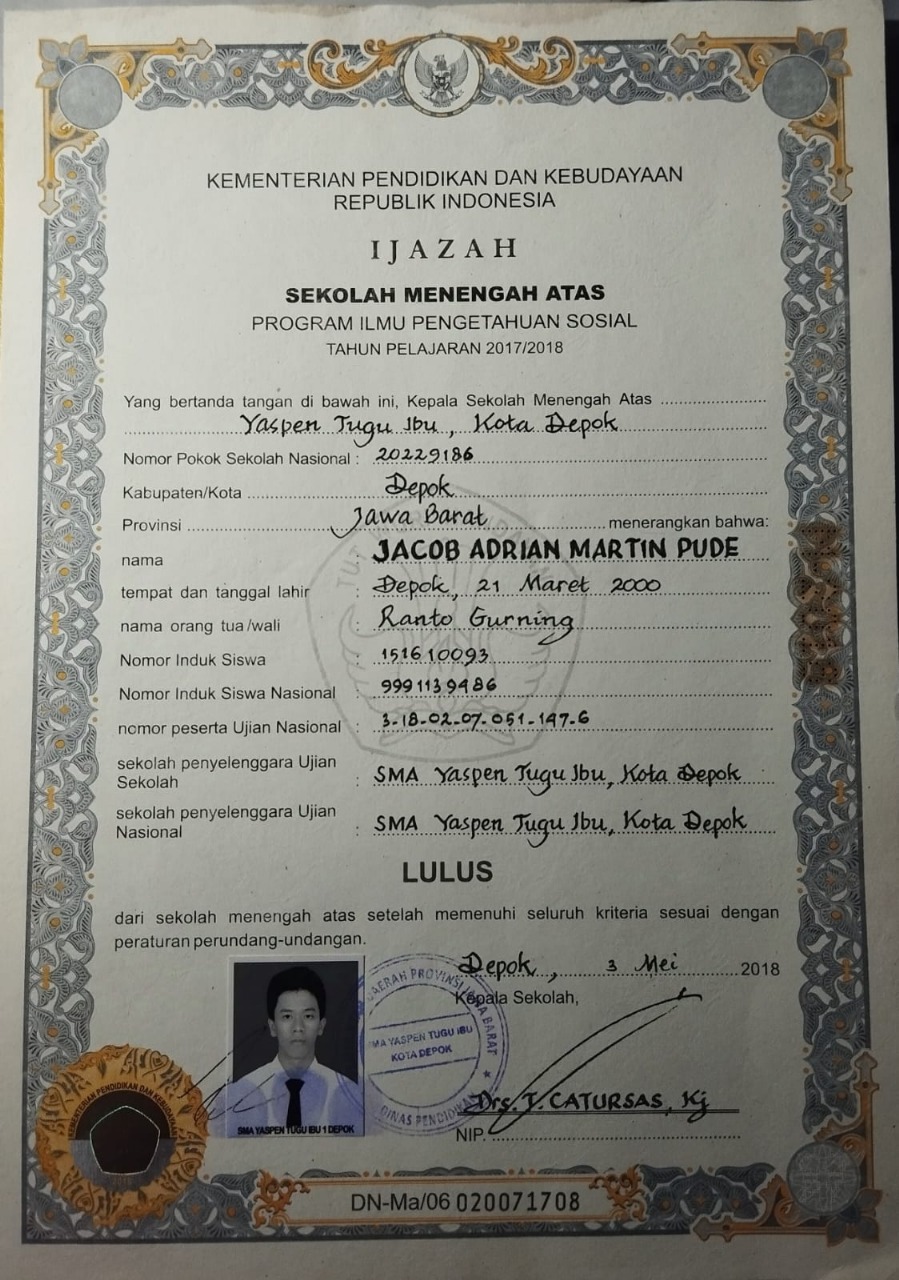 KEMENTERIAN PENDIDIKAN DAN KEBUDAYAAN
REPUBLIK INDONESIA
IJAZAH
SEKOLAH MENENGAH ATAS
PROGRAM ILMU PENGETAHUAN SOSIAL
TAHUN PELAJARAN 2017/2018
Yang bertanda tangan di bawah ini, Kepala Sekolah Menengah Atas
Yaspen Tugu Ibu, Kota Depok
Nomor Pokok Sekolah Nasional : 20229186
Kabupaten/Kota Depok
Provinsi Jawa Barat menerangkan bahwa:
nama : JACOB ADRIAN MARTIN PUDE
tempat dan tanggal lahir : Depok, 21 Maret 2000
nama orang tua/wali : Ranto Gurning
Nomor Induk Siswa : 151610093
Nomor Induk Siswa Nasional : 9991139486
nomor peserta Ujian Nasional : 3-18-02-07-051-147-6
sekolah penyelenggara Ujian
Sekolah : SMA Yaspen Tugu Ibu, Kota Depok
sekolah penyelenggara Ujian
Nasional : SMA Yaspen Tugu Ibu, Kota Depok
LULUS
dari sekolah menengah atas setelah memenuhi seluruh kriteria sesuai dengan
peraturan perundang-undangan.
Depok, 3 Mei 2018
Kepala Sekolah,
DAERAH PROVINSI JAWA BARAT
SMA YASPEN TUGU IBU
KOTA DEPOK
DINAS PENDIDIKAN
Drs. J. CATURSAS, Kj
NIP.
SMA YASPEN TUGU IBU 1 DEPOK
KEMENTERIAN PENDIDIKAN DAN KEBUDAYAAN
DN-Ma/06 020071708